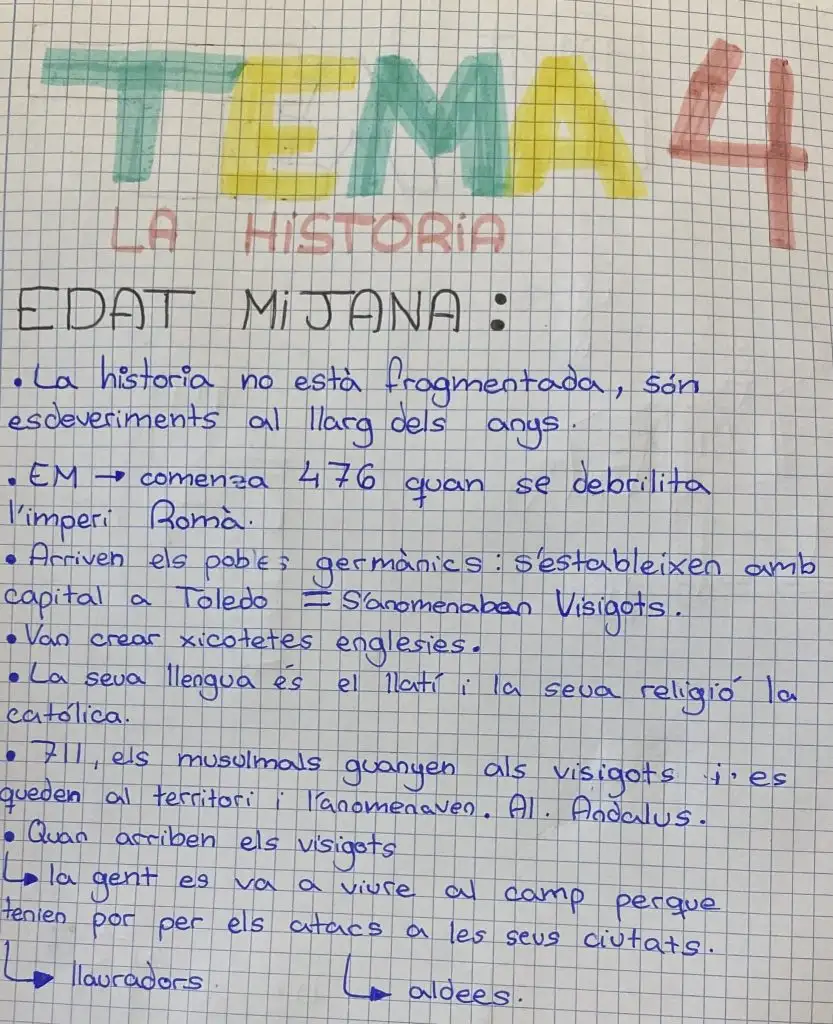 TEMA 4
LA HiSTORiA
EDAT MiJANA:
• La historia no està fragmentada, són
esdeveriments al llarg dels anys.
• EM → comenza 476 quan se debrilita
l'imperi Romà.
• Arriven els pobles germànics: s'estableixen amb
capital a Toledo = S'anomenaben Visigots.
• Van crear xicotetes englesies.
• La seua llengua és el llatí i la seua religió la
católica.
• 711, els musulmals guanyen als visigots i es
queden al territori i l'anomenaven. Al. Andalus.
• Quan arriben els visigots
↳ la gent es va a viure al camp perque
tenien por per els atacs a les seus ciutats.
↳ llauradors. ↳ aldees.